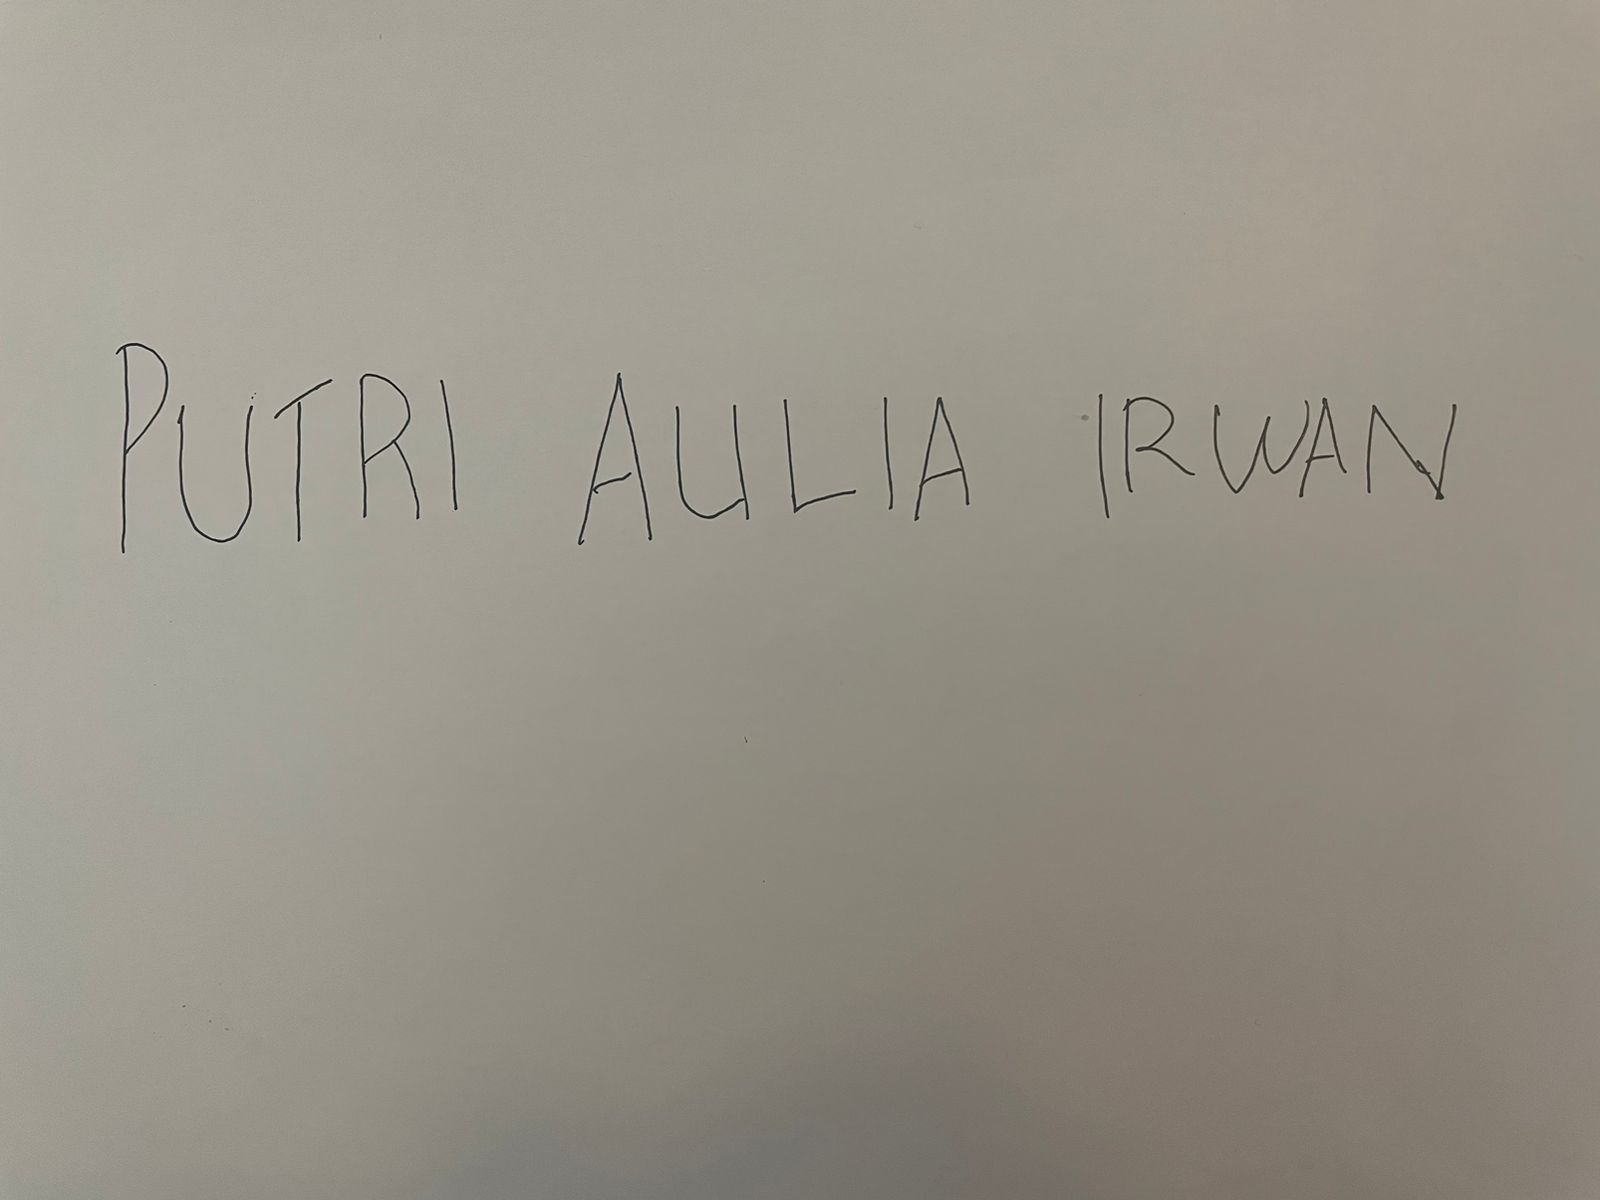 PUTRI AULIA IRWAN